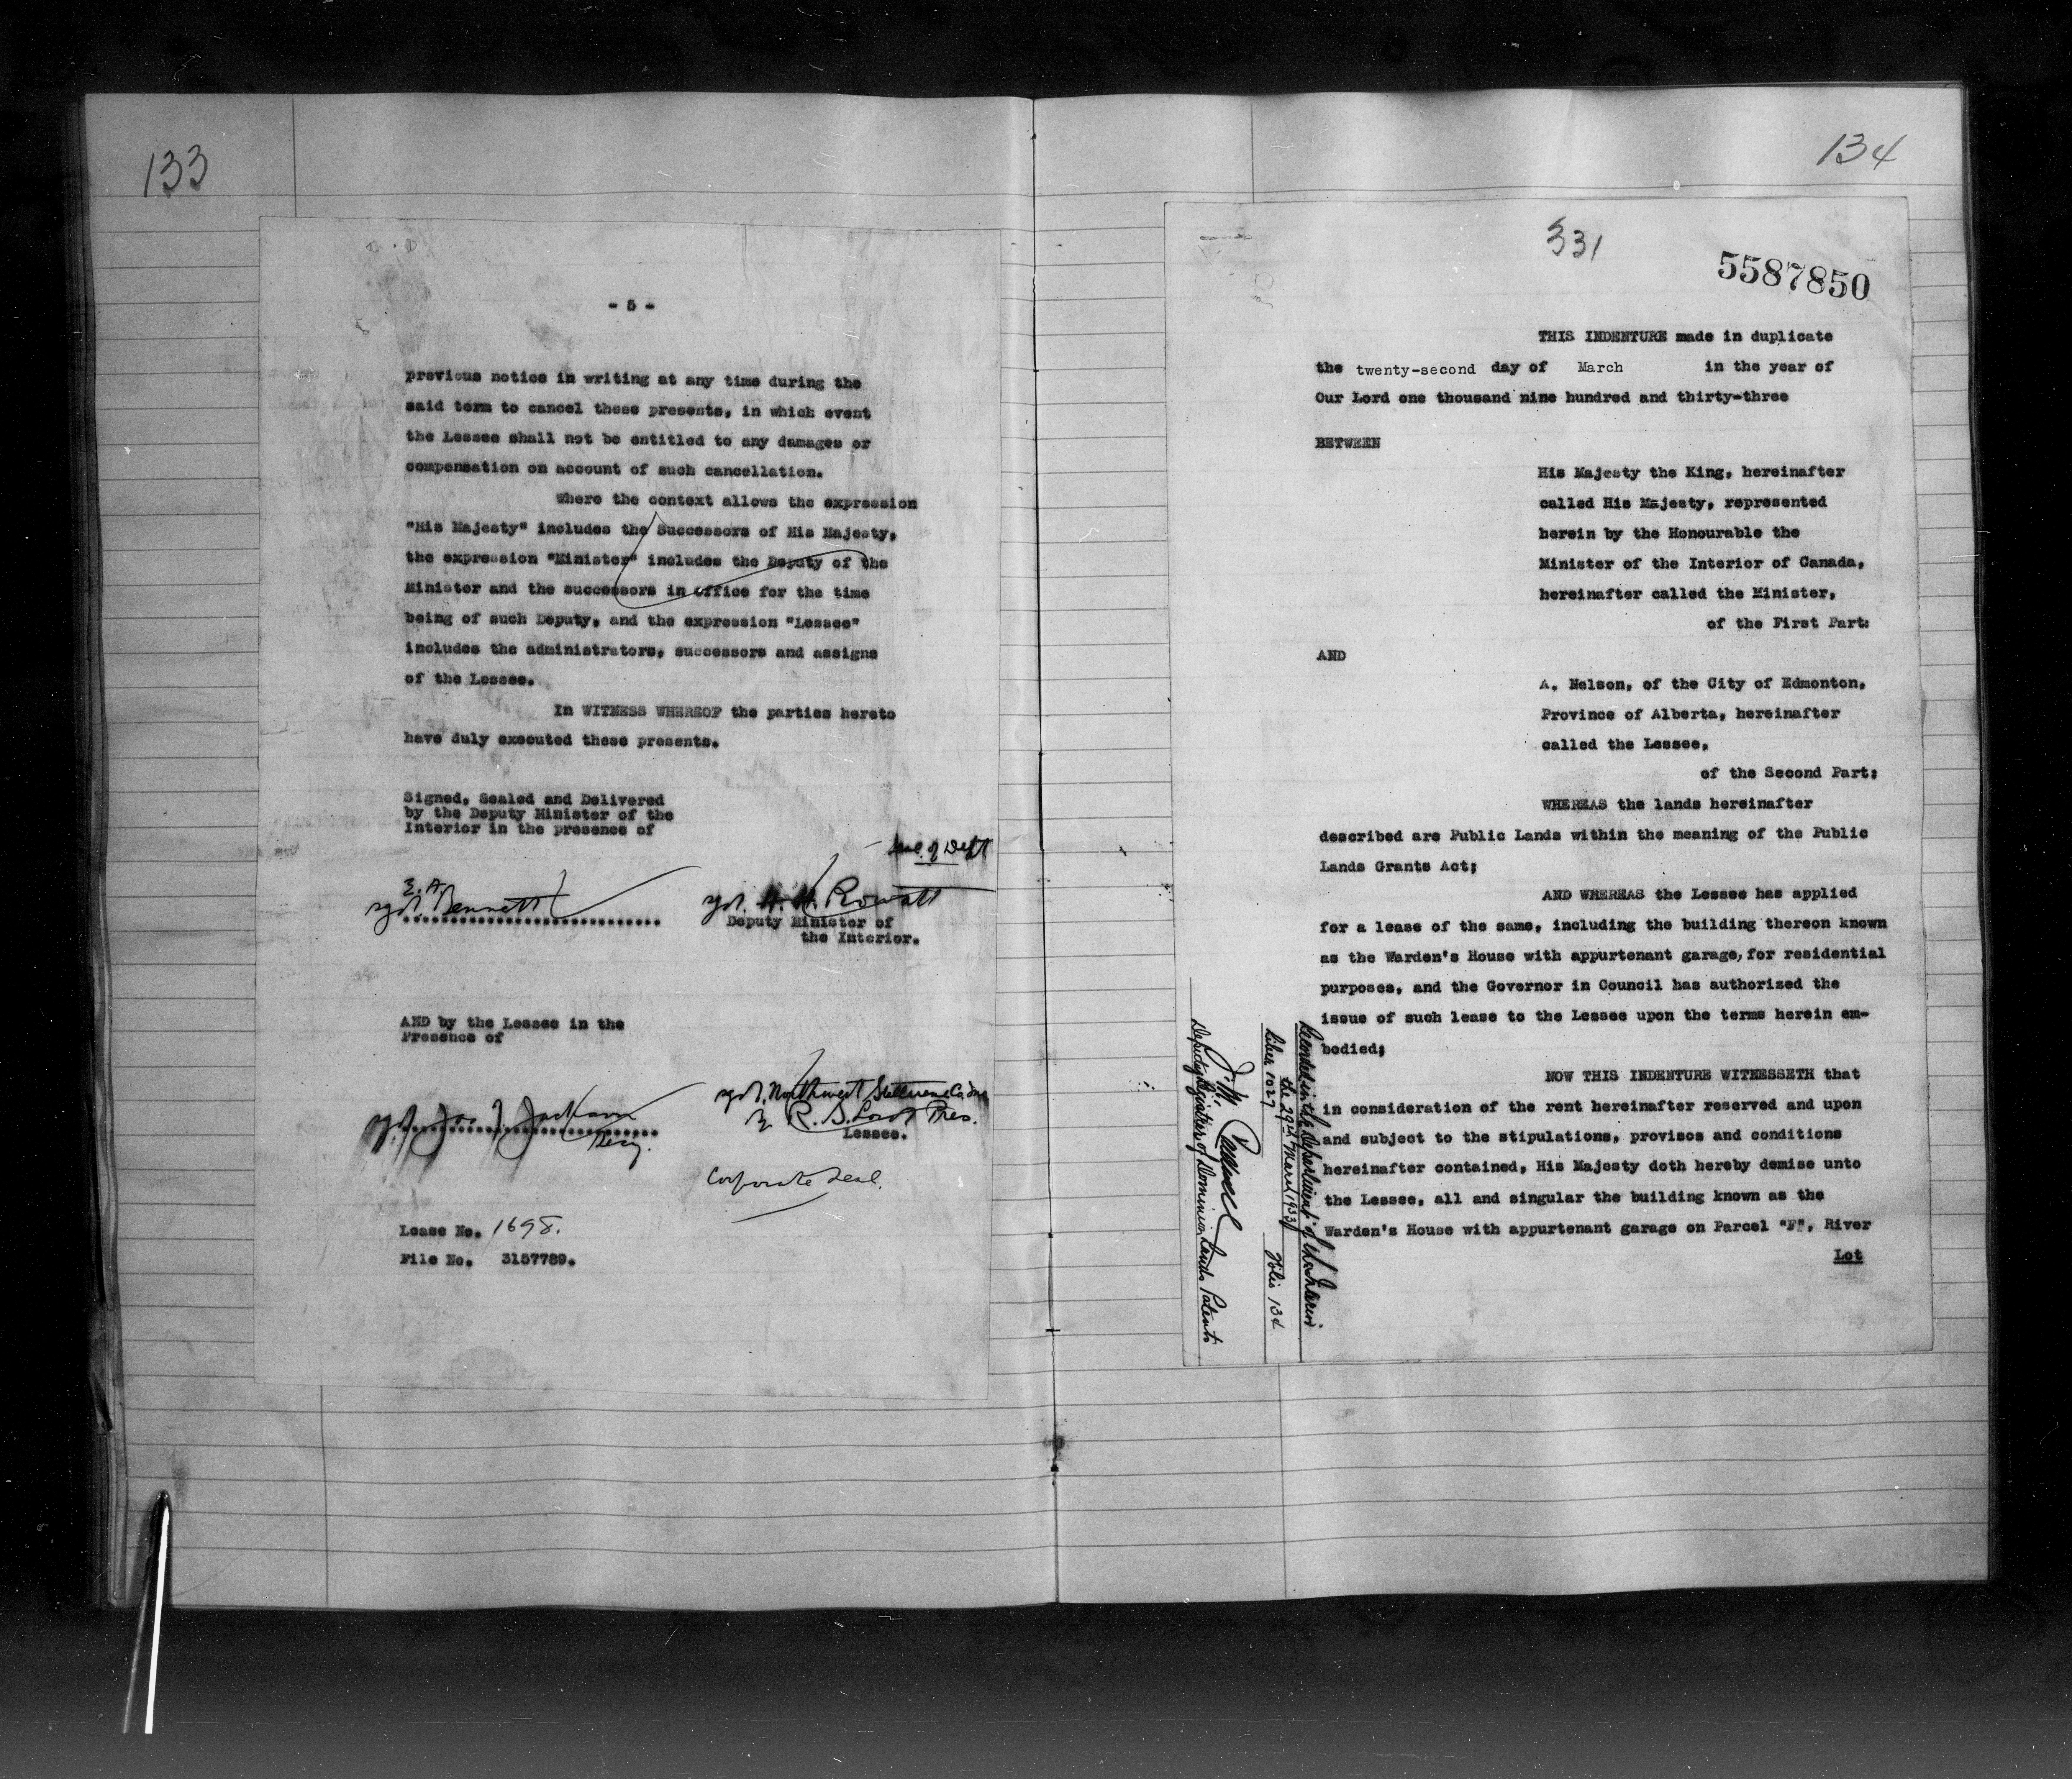 133
- 5 -
previous notice in writing at any time during the
said term to cancel these presents, in which event
the Lessee shall not be entitled to any damages or
compensation on account of such cancellation.
Where the context allows the expression
"His Majesty" includes the Successors of His Majesty,
the expression "Minister" includes the Deputy of the
Minister and the successors in office for the time
being of such Deputy, and the expression "Lessee"
includes the administrators, successors and assigns
of the Lessee.
In WITNESS WHEREOF the parties hereto
have duly executed these presents.
Signed, Sealed and Delivered
by the Deputy Minister of the
Interior in the presence of
Seal of Dept
sgd. E.A. Bennett
sgd. H. H. Rowatt
Deputy Minister of
the Interior.
AND by the Lessee in the
Presence of
sgd. Northwest
R. S. Pres.
sgd. Jas J. Jackson
Secy.
Lessee.
Corporate Seal.
Lease No. 1698.
File No. 3157789.
134
331
5587850
THIS INDENTURE made in duplicate
the twenty-second day of March in the year of
Our Lord one thousand nine hundred and thirty-three
BETWEEN
His Majesty the King, hereinafter
called His Majesty, represented
herein by the Honourable the
Minister of the Interior of Canada,
hereinafter called the Minister,
of the First Part:
AND
A. Nelson, of the City of Edmonton,
Province of Alberta, hereinafter
called the Lessee,
of the Second Part:
WHEREAS the lands hereinafter
described are Public Lands within the meaning of the Public
Lands Grants Act;
AND WHEREAS the Lessee has applied
for a lease of the same, including the building thereon known
as the Warden's House with appurtenant garage, for residential
purposes, and the Governor in Council has authorized the
issue of such lease to the Lessee upon the terms herein em-
bodied;
NOW THIS INDENTURE WITNESSETH that
in consideration of the rent hereinafter reserved and upon
and subject to the stipulations, provisos and conditions
hereinafter contained, His Majesty doth hereby demise unto
the Lessee, all and singular the building known as the
Warden's House with appurtenant garage on Parcel "F", River
Lot
Recorded in the Department of the Interior
the 29th March 1933
Liber 1027 Folio 134
Deputy Registrar of Dominion Lands Patents